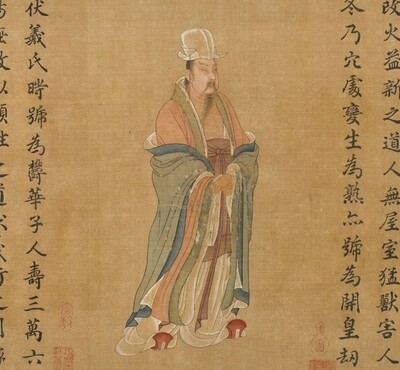 改火益新之道人無屋室猛獸害人
冬乃穴處變生為熟亦號為開皇劫
伏羲氏時號為鬱華子人壽三萬六
以順性之道